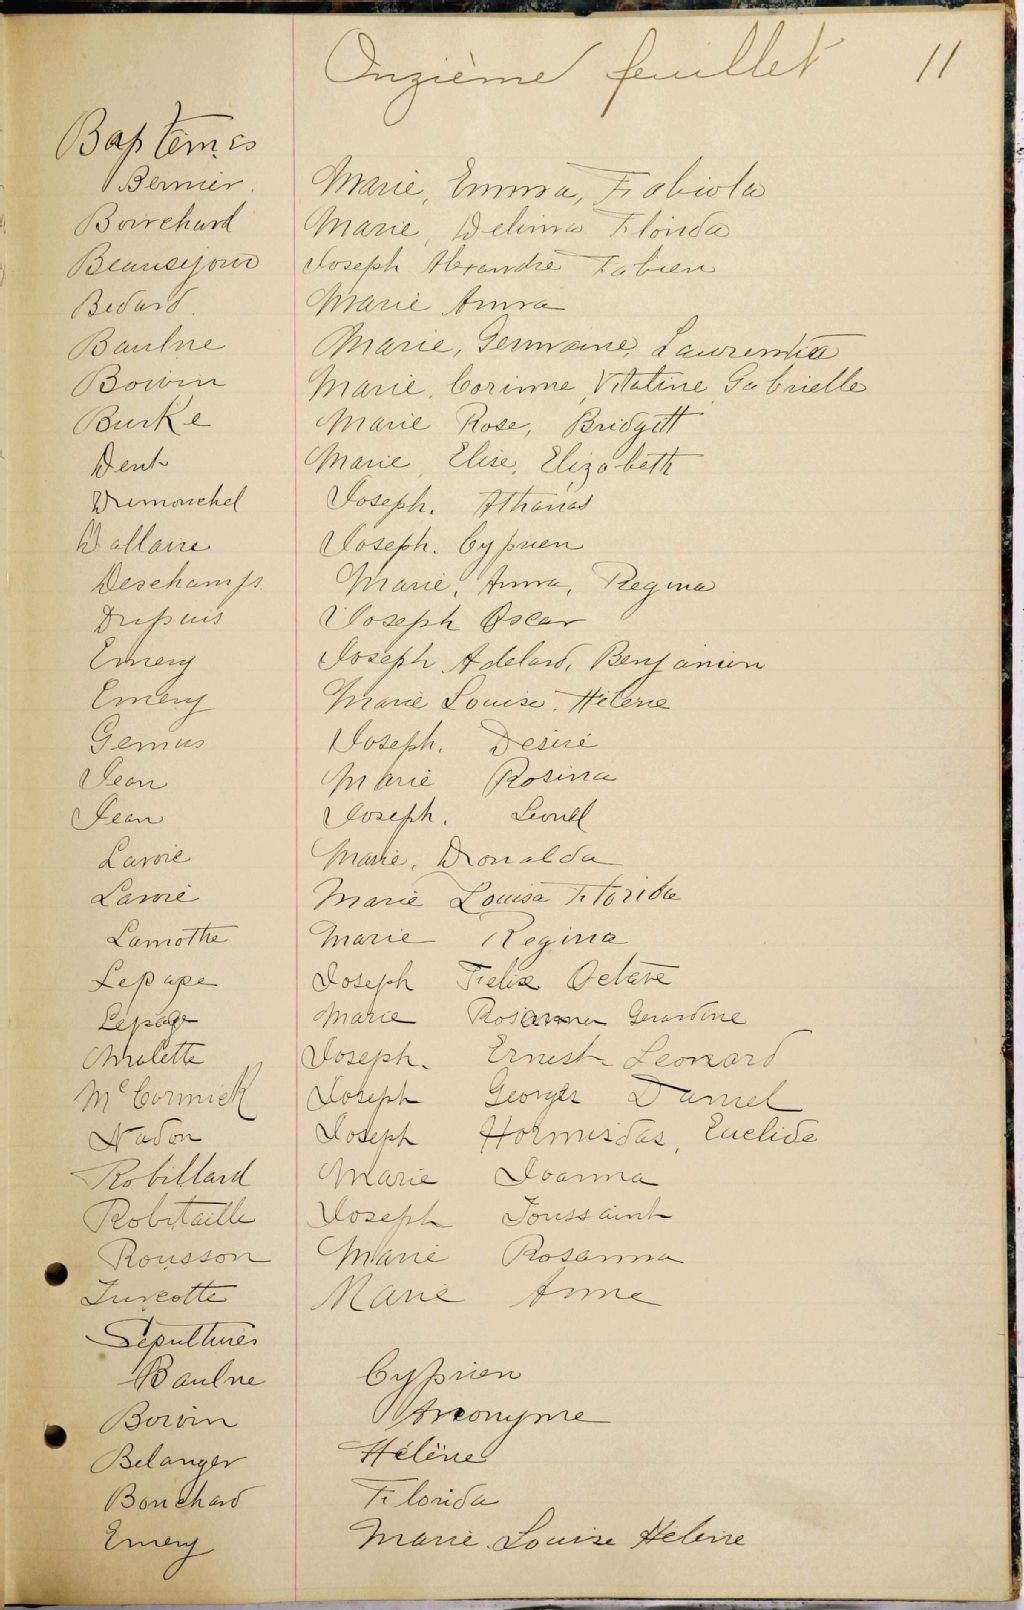 Onzième feuillet 11
Baptêmes
Bernier. Marie, Emma, Fabiola
Bourchard Marie, Delima Florida
Beausejour Joseph Alexandre Fabien
Bedard. Marie Anna
Baulne Marie, Germaine, Laurentia
Boivin Marie, Corinne, Vitaline, Gabrielle
Burke Marie Rose, Bridgitt
Dent Marie, Elise, Elizabeth
Dumouchel Joseph, Athanas
Dallaire Joseph, Cyprien
Deschamps Marie, Anna, Regina
Dupuis Joseph Oscar
Emery Joseph Adelard, Benjamin
Emery Marie Louise, Hélène
Gemus Joseph, Desiré
Jean Marie Rosina
Jean Joseph, Leonel
Lavoie Marie, Donalda
Lavoie Marie Louisa Florida
Lamothe Marie Regina
Lepape Joseph Felix Octave
Lepage Marie Rosanna Gerardine
Malette Joseph. Ernest Leonard
McCormick Joseph Georges Daniel
Nadon Joseph Hormisdas, Euclide
Robillard Marie Joanna
Robitaille Joseph Toussaint
Rousson Marie Rosanna
Turcotte Marie Anne
Sépultures
Baulne Cyprien
Boivin Anonyme
Belanger Hélène
Bouchard Florida
Emery Marie Louise Hélène